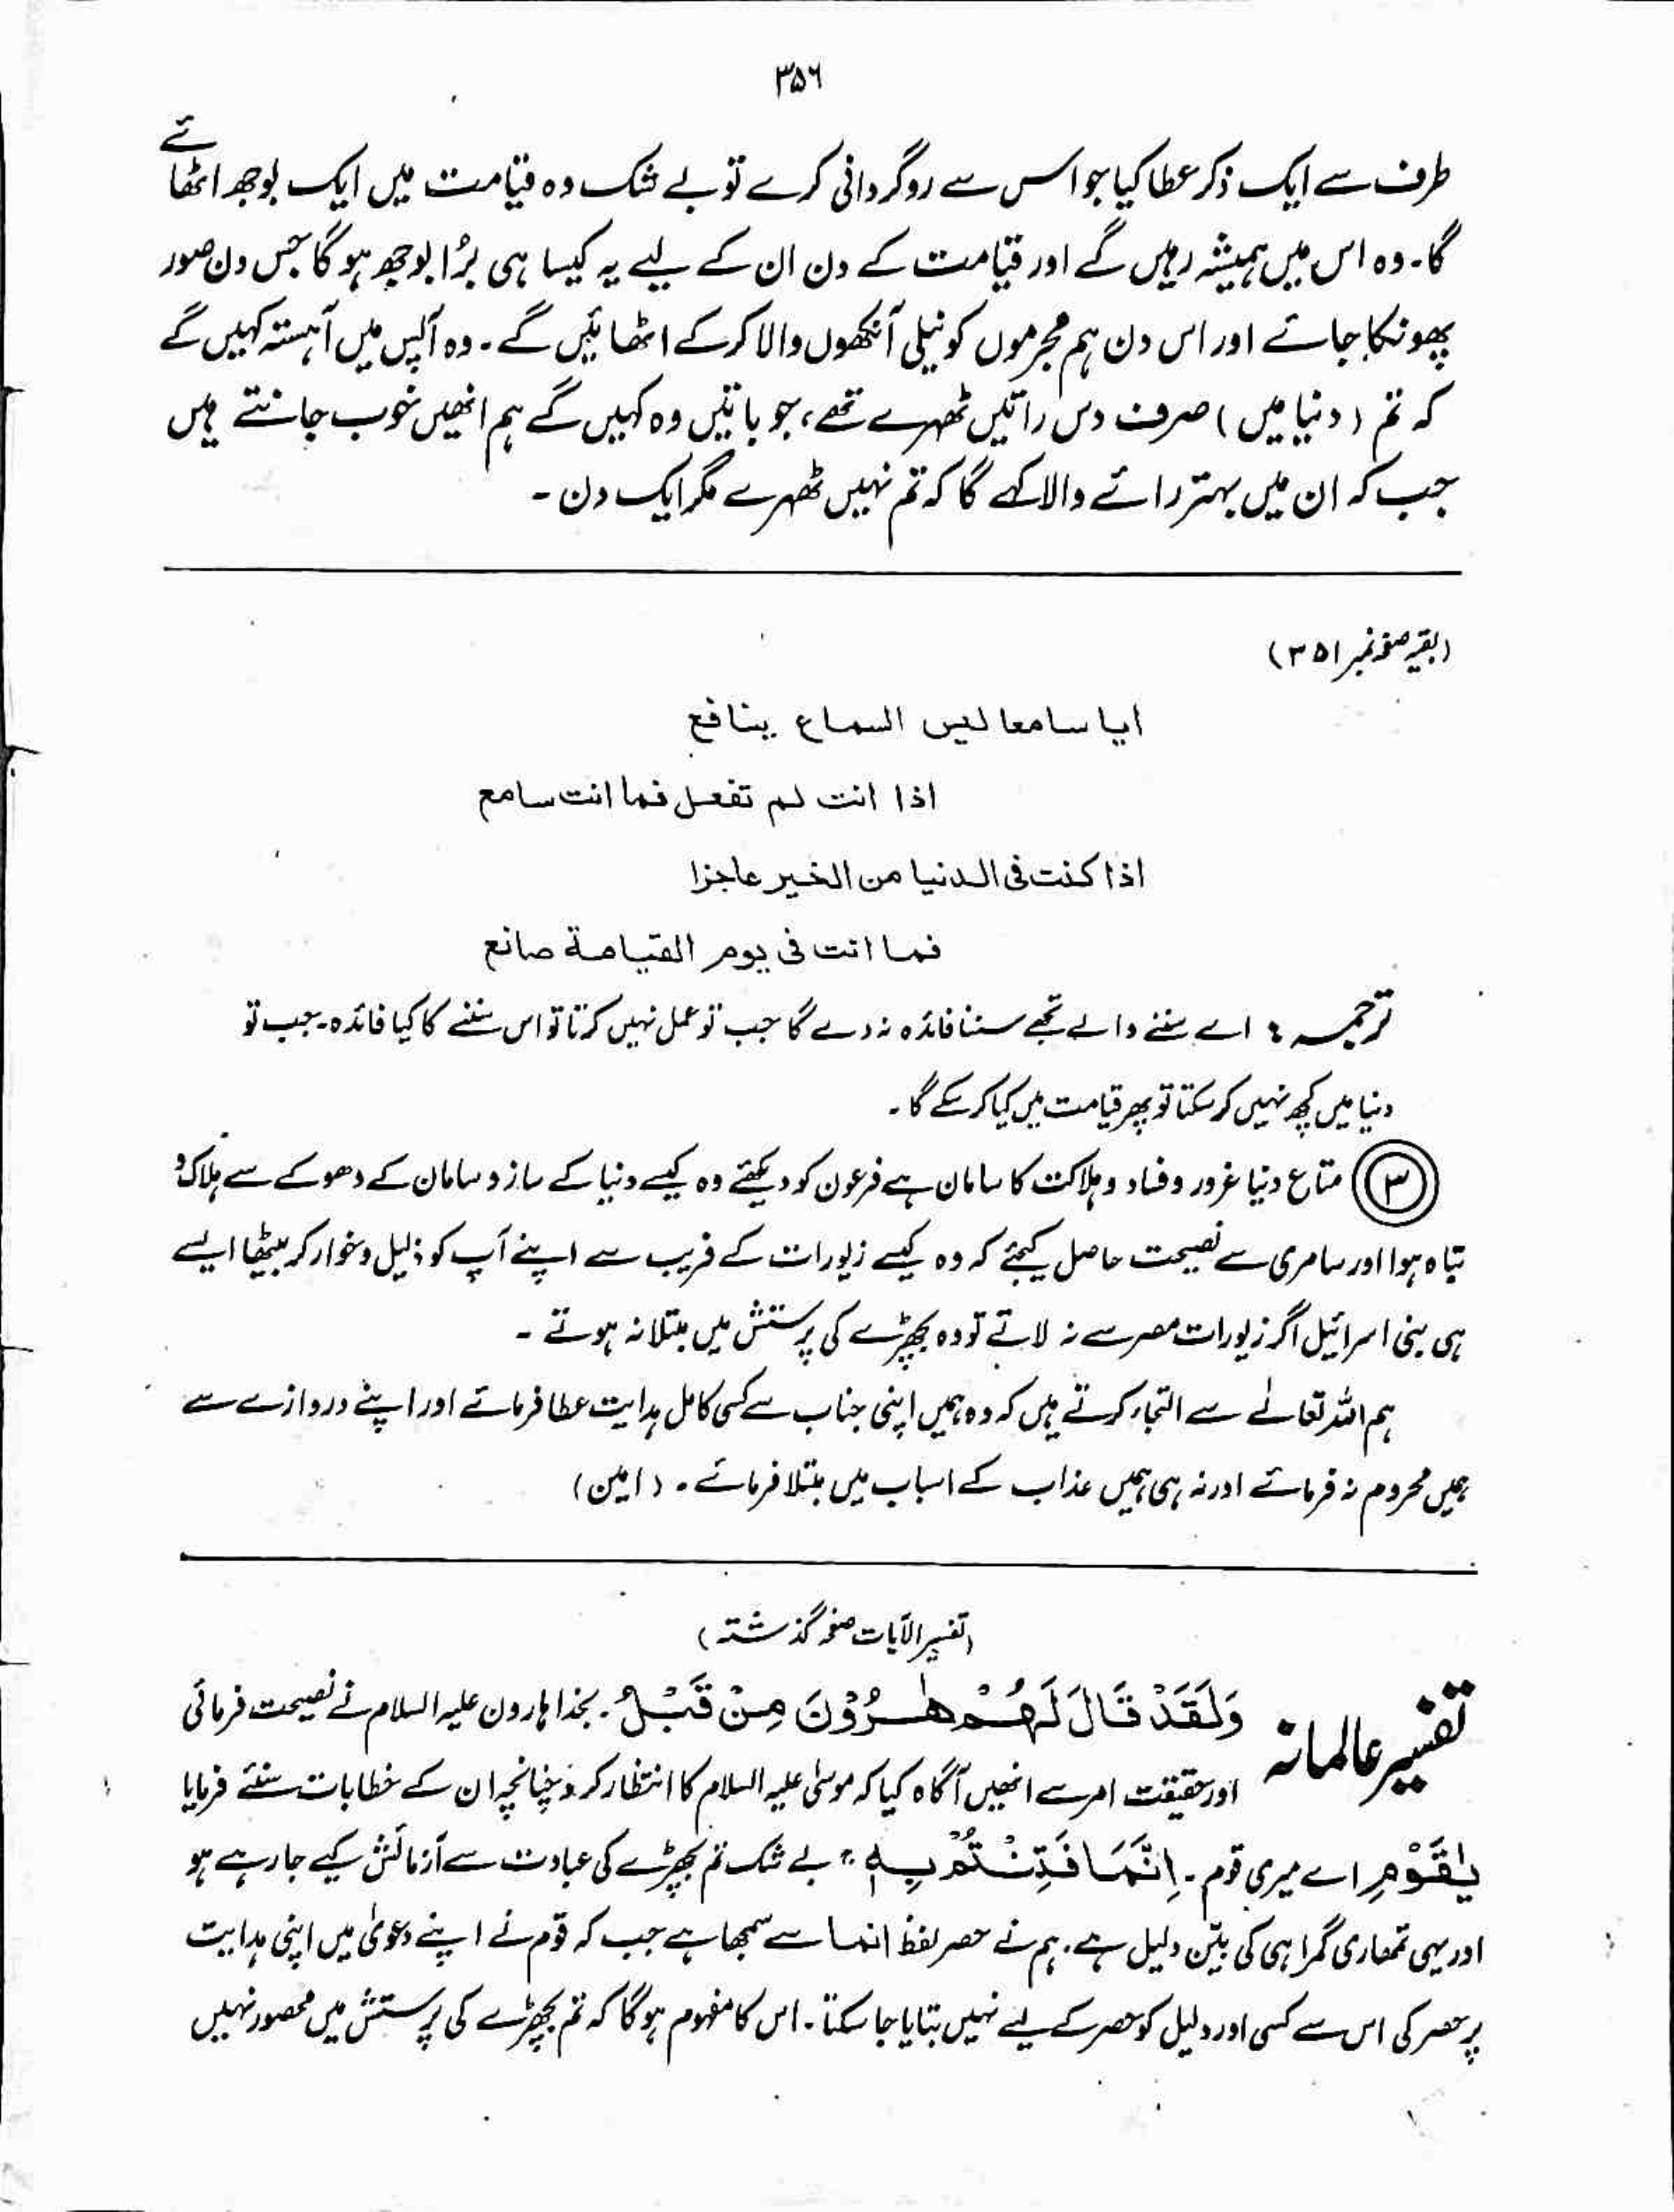 ۳۵۶
طرف سے ایک ذکر عطا کیا جو اس سے روگردانی کرے تو بے شک وہ قیامت میں ایک بوجھ اٹھائے
گا۔ وہ اس میں ہمیشہ رہیں گے اور قیامت کے دن ان کے لیے یہ کیسا ہی بُرا بوجھ ہوگا جس دن صور
پھونکا جائے اور اس دن ہم مجرموں کو نیلی آنکھوں والا کرکے اٹھائیں گے۔ وہ آپس میں آہستہ کہیں گے
کہ تم (دنیا میں) صرف دس راتیں ٹھہرے تھے، جو باتیں وہ کہیں گے ہم انھیں خوب جانتے ہیں
جب کہ ان میں بہتر رائے والا کہے گا کہ تم نہیں ٹھہرے مگر ایک دن۔
(بقیہ صفحہ نمبر ۳۵۱)
ایا سامعا لیس السماع بنافع
اذا انت لم تفعل فما انت سامع
اذا کنت فی الدنیا من الخیر عاجزا
فما انت فی یوم القیامة صانع
ترجمہ: اے سننے والے تجھے سننا فائدہ نہ دے گا جب تو عمل نہیں کرتا تو اس سننے کا کیا فائدہ۔ جب تو
دنیا میں کچھ نہیں کر سکتا تو پھر قیامت میں کیا کر سکے گا۔
۳ متاع دنیا غرور و فساد و ہلاکت کا سامان ہے فرعون کو دیکھئے وہ کیسے دنیا کے ساز و سامان کے دھوکے سے ہلاک و
تباہ ہوا اور سامری سے نصیحت حاصل کیجئے کہ وہ کیسے زیورات کے فریب سے اپنے آپ کو ذلیل و خوار کر بیٹھا ایسے
ہی بنی اسرائیل اگر زیورات مصر سے نہ لاتے تو وہ بچھڑے کی پرستش میں مبتلا نہ ہوتے۔
ہم اللہ تعالےٰ سے التجاء کرتے ہیں کہ وہ ہمیں اپنی جناب سے کسی کامل ہدایت عطا فرمائے اور اپنے دروازے سے
ہمیں محروم نہ فرمائے اور نہ ہی ہمیں عذاب کے اسباب میں مبتلا فرمائے۔ (امین)
(تفسیر الآیات صفحہ گذشتہ)
تفسیر عالمانہ وَلَقَدْ قَالَ لَهُمْ هٰرُوْنَ مِنْ قَبْلُ۔ بخدا ہارون علیہ السلام نے نصیحت فرمائی
اور حقیقت امر سے انھیں آگاہ کیا کہ موسیٰ علیہ السلام کا انتظار کرو چنانچہ ان کے خطابات سنئے فرمایا
یٰقَوْمِ اے میری قوم۔ اِنَّمَا فُتِنْتُمْ بِهٖ بے شک تم بچھڑے کی عبادت سے آزمائش کیے جا رہے ہو
اور یہی تمھاری گمراہی کی بیّن دلیل ہے۔ ہم نے حصر لفظ انما سے سمجھا ہے جب کہ قوم نے اپنے دعویٰ میں اپنی ہدایت
پر حصر کی اس سے کسی اور دلیل کو حصر کے لیے نہیں بتایا جا سکتا۔ اس کا مفہوم ہوگا کہ تم بچھڑے کی پرستش میں محصور نہیں